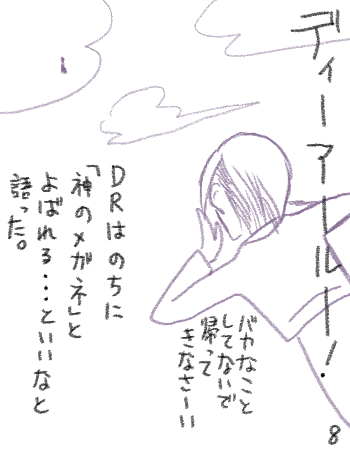 ディーアールー！
バカなこと
してないで
帰って
きなさーいい
DRはのちに
「神のメガネ」と
よばれる・・・といいなと
語った。
8